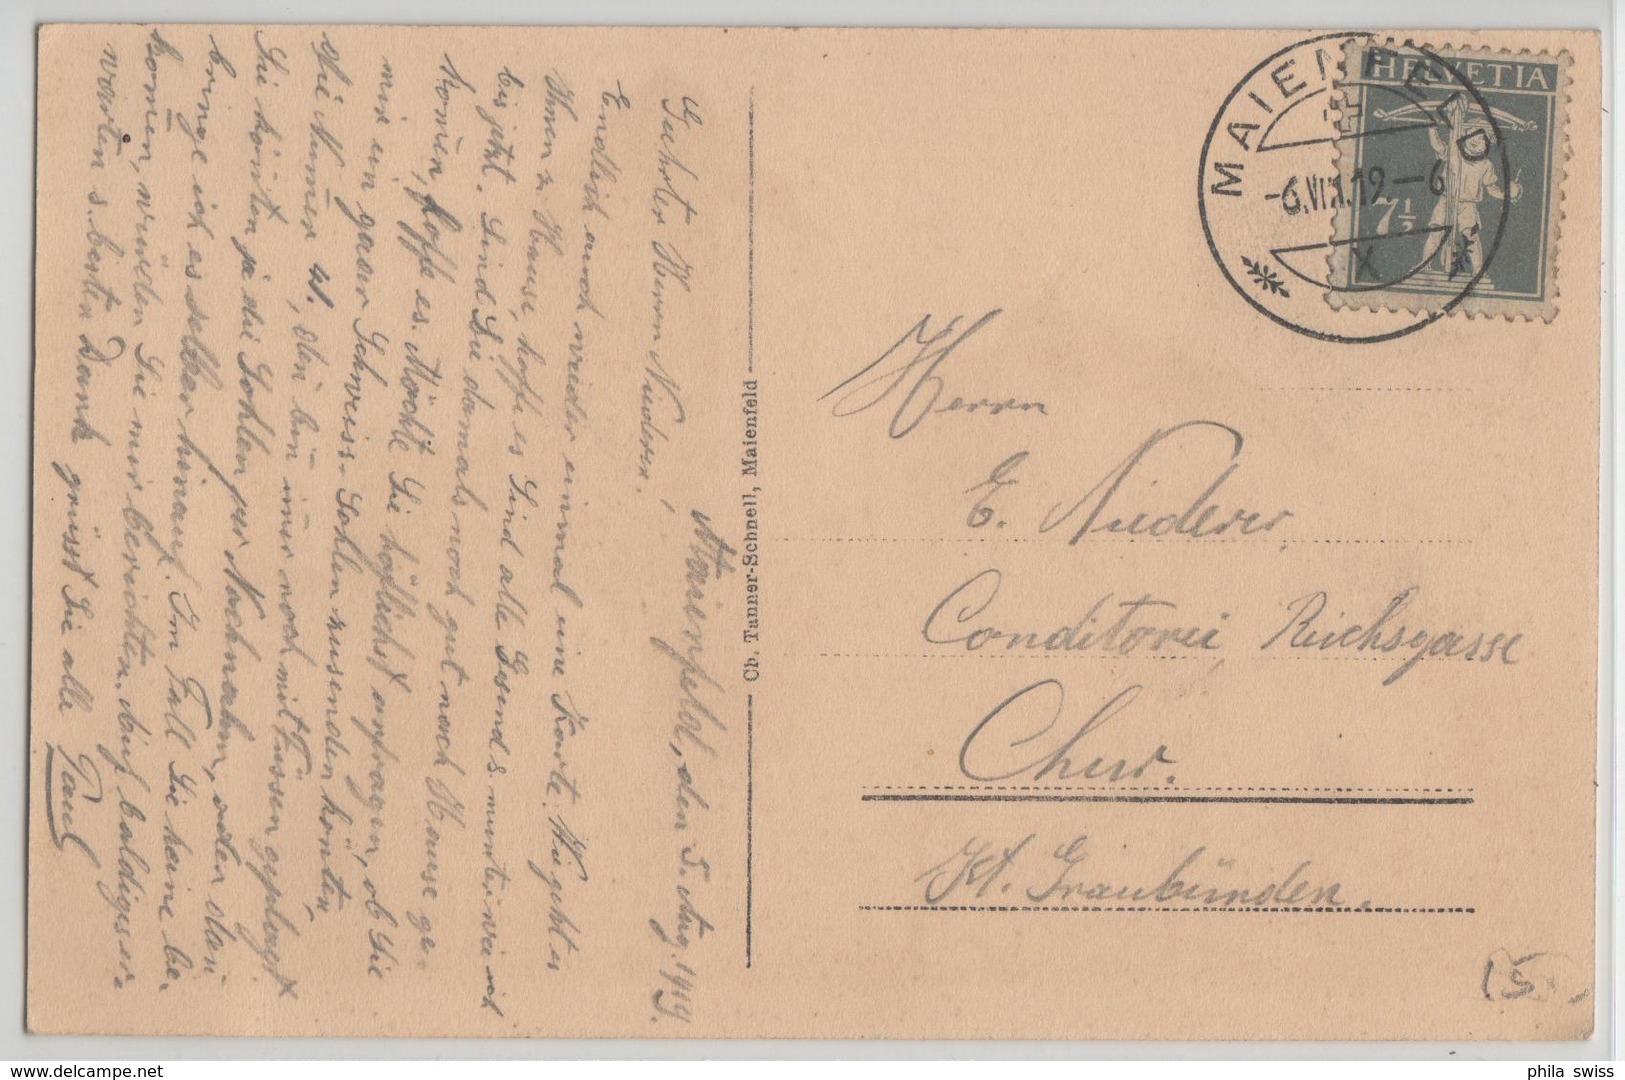 Maienfeld, den 5. Aug. 1919.
Geehrter Herrn Niederer!
Endlich auch wieder einmal eine Karte. Wie geht es
Ihnen z. Hause, hoffe es Sind alle Gesund s. munter wie ich
bis jetzt. Sind Sie damals noch gut nach Hause ge-
kom̅en, hoffe es. Möchte Sie höflichst anfragen, ob Sie
mir ein Schweiss-Sohlen zusenden kön̅ten,
die Num̅er 41, den̅ bin im̅er noch mit Füssen geplagt
Sie kön̅ten ja die Sohlen per Nachnahm, oder dan̅
bringe ich es selber hinauf. Im Fall Sie keine be-
kom̅en, würden Sie mir berichten. Auf baldiges er-
warten s. besten Dank grüsst Sie alle Paul
Ch. Tanner-Schnell, Maienfeld
HELVETIA
7½
MAIENFELD
-6.VIII.19.-6
X
Herrn
E. Niederer,
Conditorei, Reichsgasse
Chur.
Kt. Graubünden.
phila swiss
delcampe.net